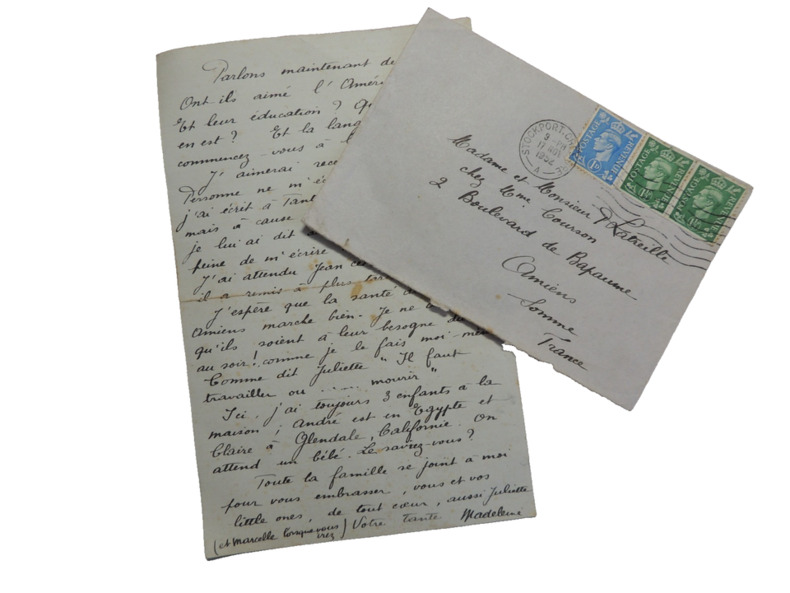 Parlons maintenant de
Ont ils aimé l'Améri
Et leur éducation? Qu
en est? Et la lang
commencez-vous à l
J'aimerai rece
Personne ne m'éc
j'ai écrit à Tant
mais à cause
je lui ai dit
peine de m'écrire
J'ai attendu Jean
il a remis à plus tard
J'espère que la santé d
Amiens marche bien. Je ne
qu'ils soient à leur besogne du
au soir! comme je le fais moi-mêm
Comme dit Juliette "Il faut
travailler ou ...... mourir"
Ici, j'ai toujours 3 enfants à la
maison; André est en Egypte et
Claire à Glendale, Californie. On
attend un bébé. Le saviez-vous?
Toute la famille se joint à moi
pour vous embrasser, vous et vos
little ones, de tout cœur, aussi Juliette
(et Marcelle lorsque vous irez) Votre tante Madeleine
STOCKPORT, CH
9 PM
17
1952
A
POSTAGE REVENUE
1D
POSTAGE REVENUE
1½D
POSTAGE REVENUE
1½D
Madame et Monsieur P Latreille
chez Mme Courson
2 Boulevard de Bapaume
Amiens
Somme
France